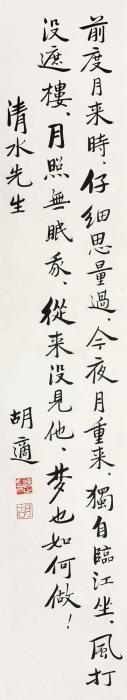 前度月来時，仔细思量過，今夜月重来，獨自臨江坐，風打
没遮樓，月照無眠我，從来没見他，梦也如何做！
清水先生
胡適